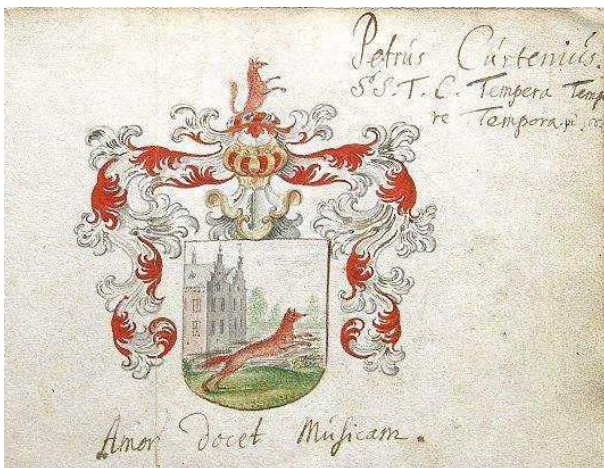 Petrús Cúrteniús.
S. S. T. C. Tempera
re Tempora.
Amor docet Músicam.